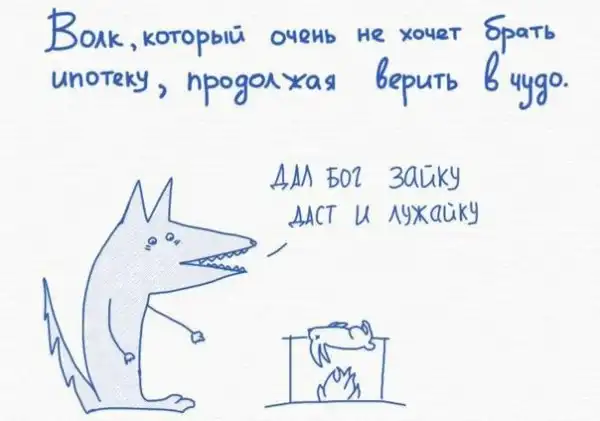 Волк, который очень не хочет брать
ипотеку, продолжая верить в чудо.
ДАЛ БОГ ЗАЙКУ
ДАСТ И ЛУЖАЙКУ